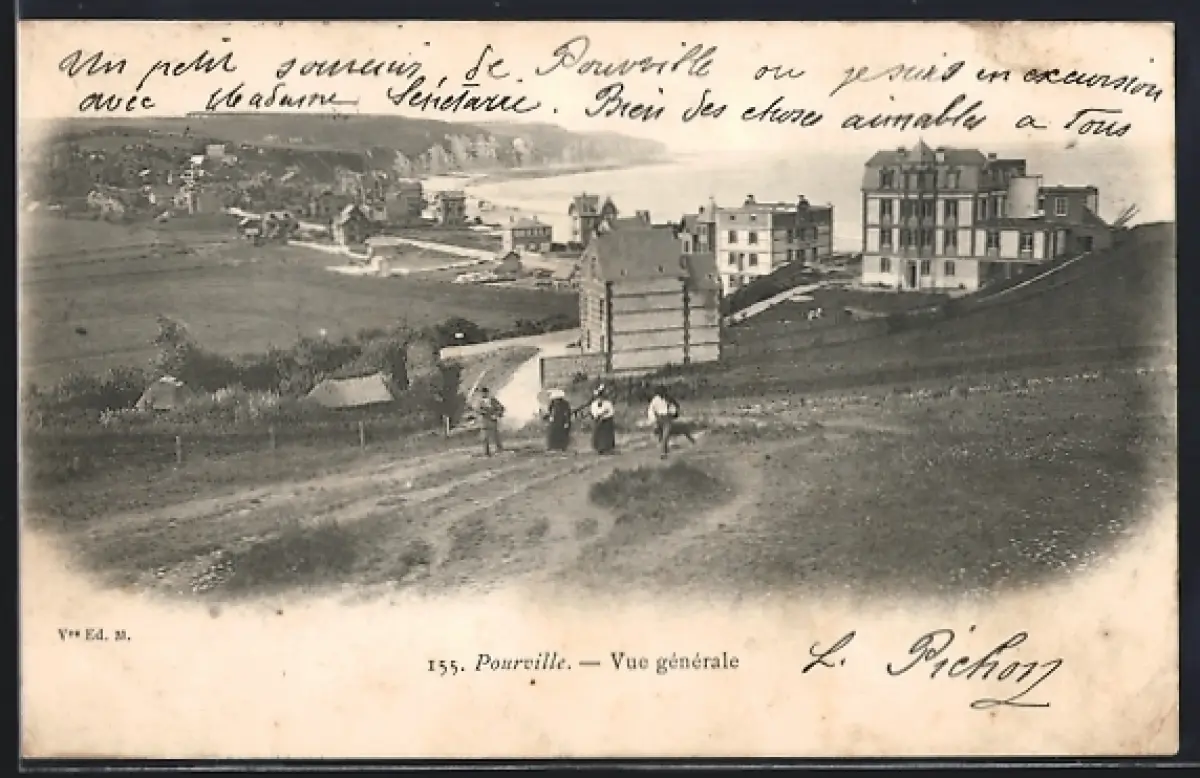 Un petit souvenir, de Pourville ou je suis en excursion
avec Madame Senétaire. Bien des choses aimables a Tous
Vve Ed. M.
155. Pourville. — Vue générale
L. Pichon